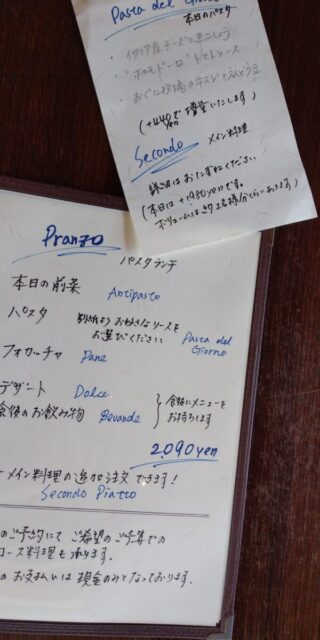 Pasta del Giorno
本日のパスタ
・ポモドーロ トマトソース
(+440で増量いたします)
yen
Secondo メイン料理
詳細はおたずねください
(本日は +1980yenです。
ボリュームは約2名様分くらいあります)
Pranzo
パスタランチ
本日の前菜 Antipasto
パスタ 別紙よりお好きなソースを
お選びください
Pasta del
Giorno
フォカッチャ Pane
デザート Dolce
食後のお飲み物 Bevande
食後にメニューを
お持ちします
2,090yen
メイン料理の追加注文できます!
Secondo Piatto
のご予約にて ご希望のご予算での
コース料理も承ります。
のお支払いは現金のみとなっております。